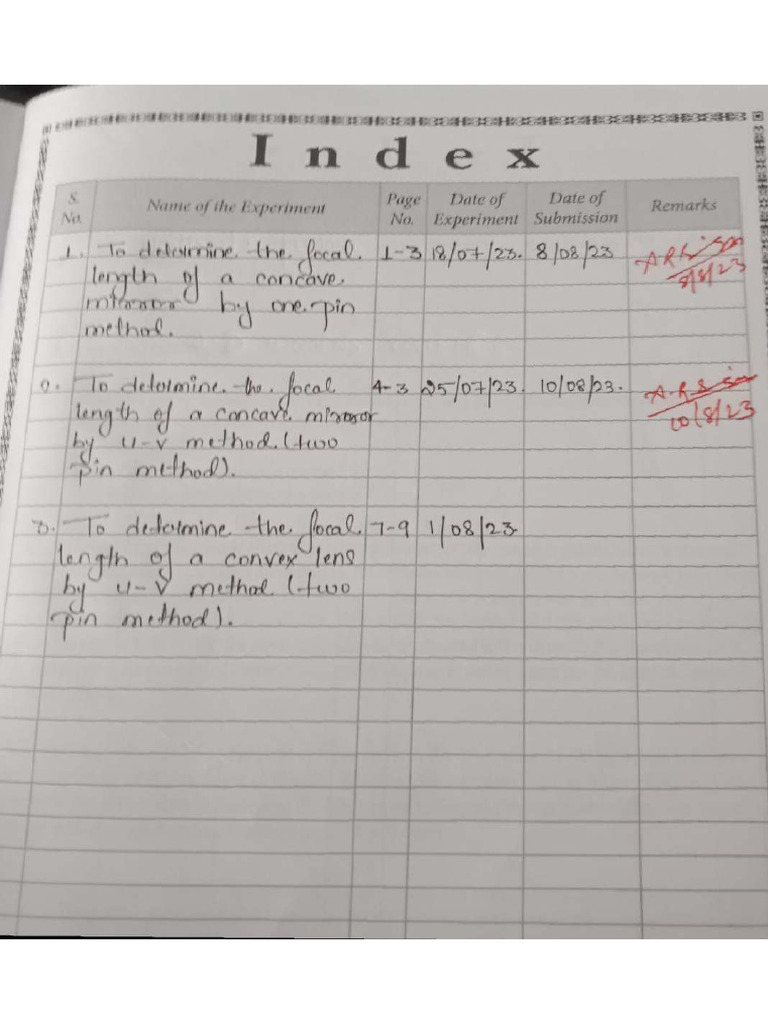 Index
S. No. Name of the Experiment Page No. Date of Experiment Date of Submission Remarks
1. To determine the focal 1-3 18/07/23. 8/08/23
length of a concave 8/8/23
mirror by one pin
method.
2. To determine the focal 4-3 25/07/23. 10/08/23.
length of a concave mirror 10/8/23
by u-v method (two
pin method).
3. To determine the focal 7-9 1/08/23
length of a convex lens
by u-v method (two
pin method).